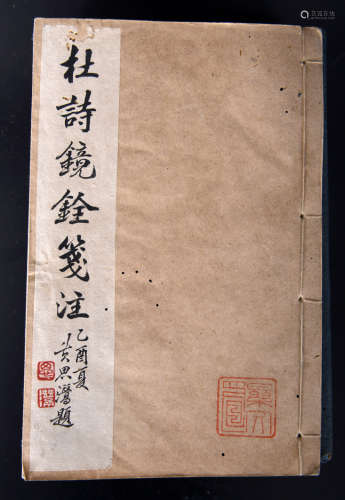 杜詩鏡銓箋注
乙酉夏
黄思潛題